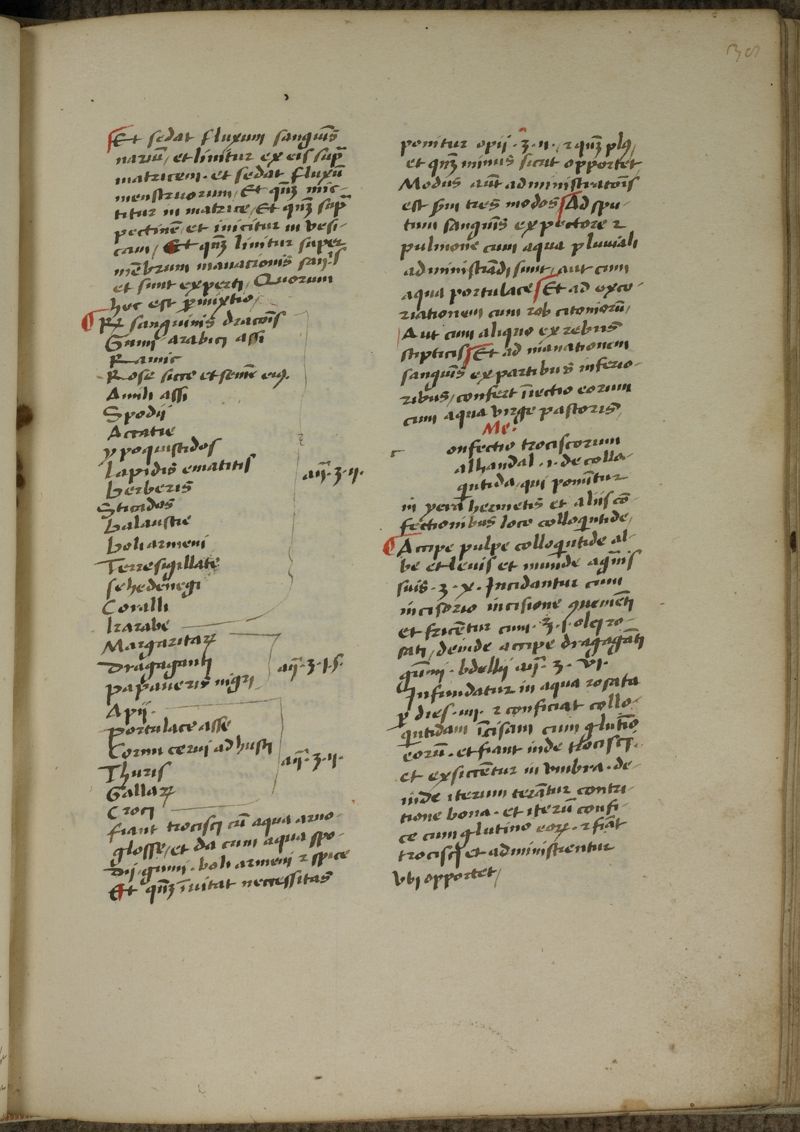 Et sedat fluxum sanguīs
nariū, et linitur ex eis sup̄
matricem. et sedat fluxū
menstruorum, Et qn̄ mic-
titur in matrice, Et qn̄ sup̄
pectinē, et inicitur in vesi-
cam, Et qn̄ linitur super
mēbrum manacionis
et sunt experti, Quorum
hec est ꝑmixtio,
R͞ sanguinis dracōis
Gumi arabici assi
Ramic
Rose sicce et semīe eiꝰ.
Amili assi
Spodij
Accatie
ypoquistidos
Lapidis ematitis
berberis
balaustie
boli armeni
Terre sigillate
sehedenegi
Coralli
karabe
añ. ʒ. ij.
Margaritaꝝ
Dragaganti
papaueris nigri
añ. ʒ. j. s.
Apij.
portulace asse
Cornu cerui adhusti
Thuris
Gallaꝝ
Croci
añ. ʒ. ij.
fiant trocisci cū aqua arno-
glosse, et da cum aqua spo-
dij. gumi. boli armeni ⁊ spice
Et qn̄ īuitat neccessitas
30
ponitur opij. ʒ. ij. ⁊ qn̄ plꝰ,
et qn̄ minus sicut opportet
Modus aūt administracōis
est scd̄m tres modos Ad spu-
tum sanguīs ex pectore ⁊
pulmone cum aqua pluuiali
administrādi sunt, aut cum
aqua portulace Et ad exco-
riationem cum rob citoniorū,
Aut cum aliquo ex rebus
stipticis Et ad manationem
sanguīs ex partibus inferio-
ribus, confert īiectio eorum
cum aqua virge pastoris,
Me.
c onfectio trociscorum
alhandal .i. de collo-
quītida, qui ponitur
in yera hermetis et aliis cō-
fectionibus loco colloquītide,
Accipe pulpe colloquītide al-
be et leuis et munde a gͣnis
suis. ʒ. x. Incidantur cum
incisorio incisione
et fricentur cum. ʒ. j. olei ro-
sati, deinde accipe dragagāti
gūmi. bdellij añ. ʒ. vi.
Infundatur in aqua rosata
ꝑ dies. iij. ⁊ conficiat collo-
quītidam īcisam cum glutīo
eorū. et fiant inde trociscj.
et exsiccētur in vmbra. de-
inde iterum terātur contri-
tione bona. et iterū confi-
ce cum glutino eoꝝ. ⁊ fiāt
trociscj et administrentur
vbj opportet,